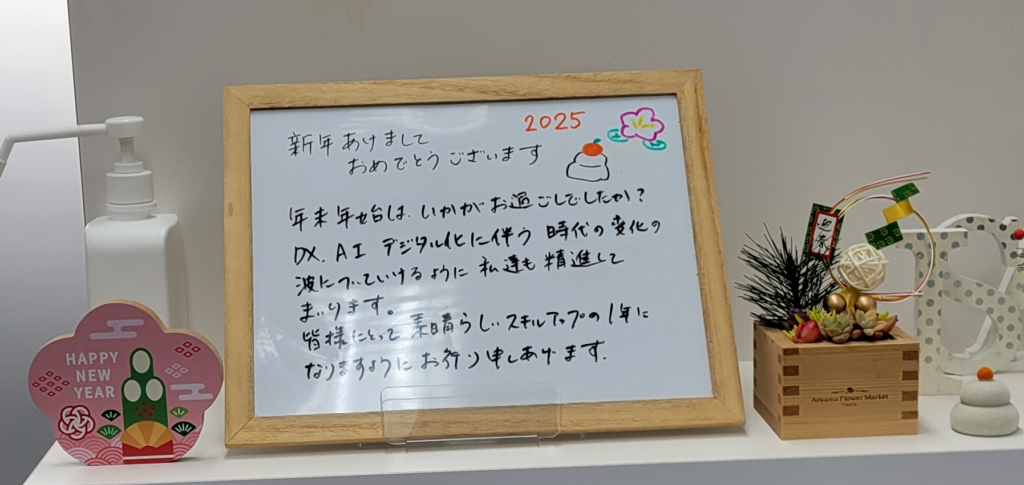 新年あけまして
おめでとうございます
2025
年末年始は、いかがお過ごしでしたか?
DX、AI デジタル化に伴う 時代の変化の
波についていけるように 私達も精進して
まいります。
皆様にとって 素晴らしいスキルアップの1年に
なりますようにお祈り申しあげます.
HAPPY
NEW
YEAR
迎春
Aoyama Flower Market